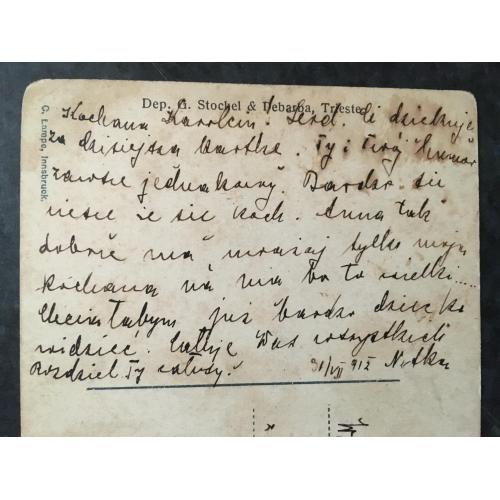 Dep. G. Stockel & Debarba, Trieste
C. Lampe, Innsbruck.
Kochana Karolciu! Serd. Ci dziekuję
za dzisiejszą kartkę. Ty i Twój humor
zawsze jednakowy. Bardzo się
cieszę że się koch. Anna tak
dobrze ma uważaj tylko moja
kochana na nią bo to wielki.....
Chciałabym już bardzo dziecko
widzieć. Całuję Was wszystkich
Rozdziel Ty całusy! 31/VII 912